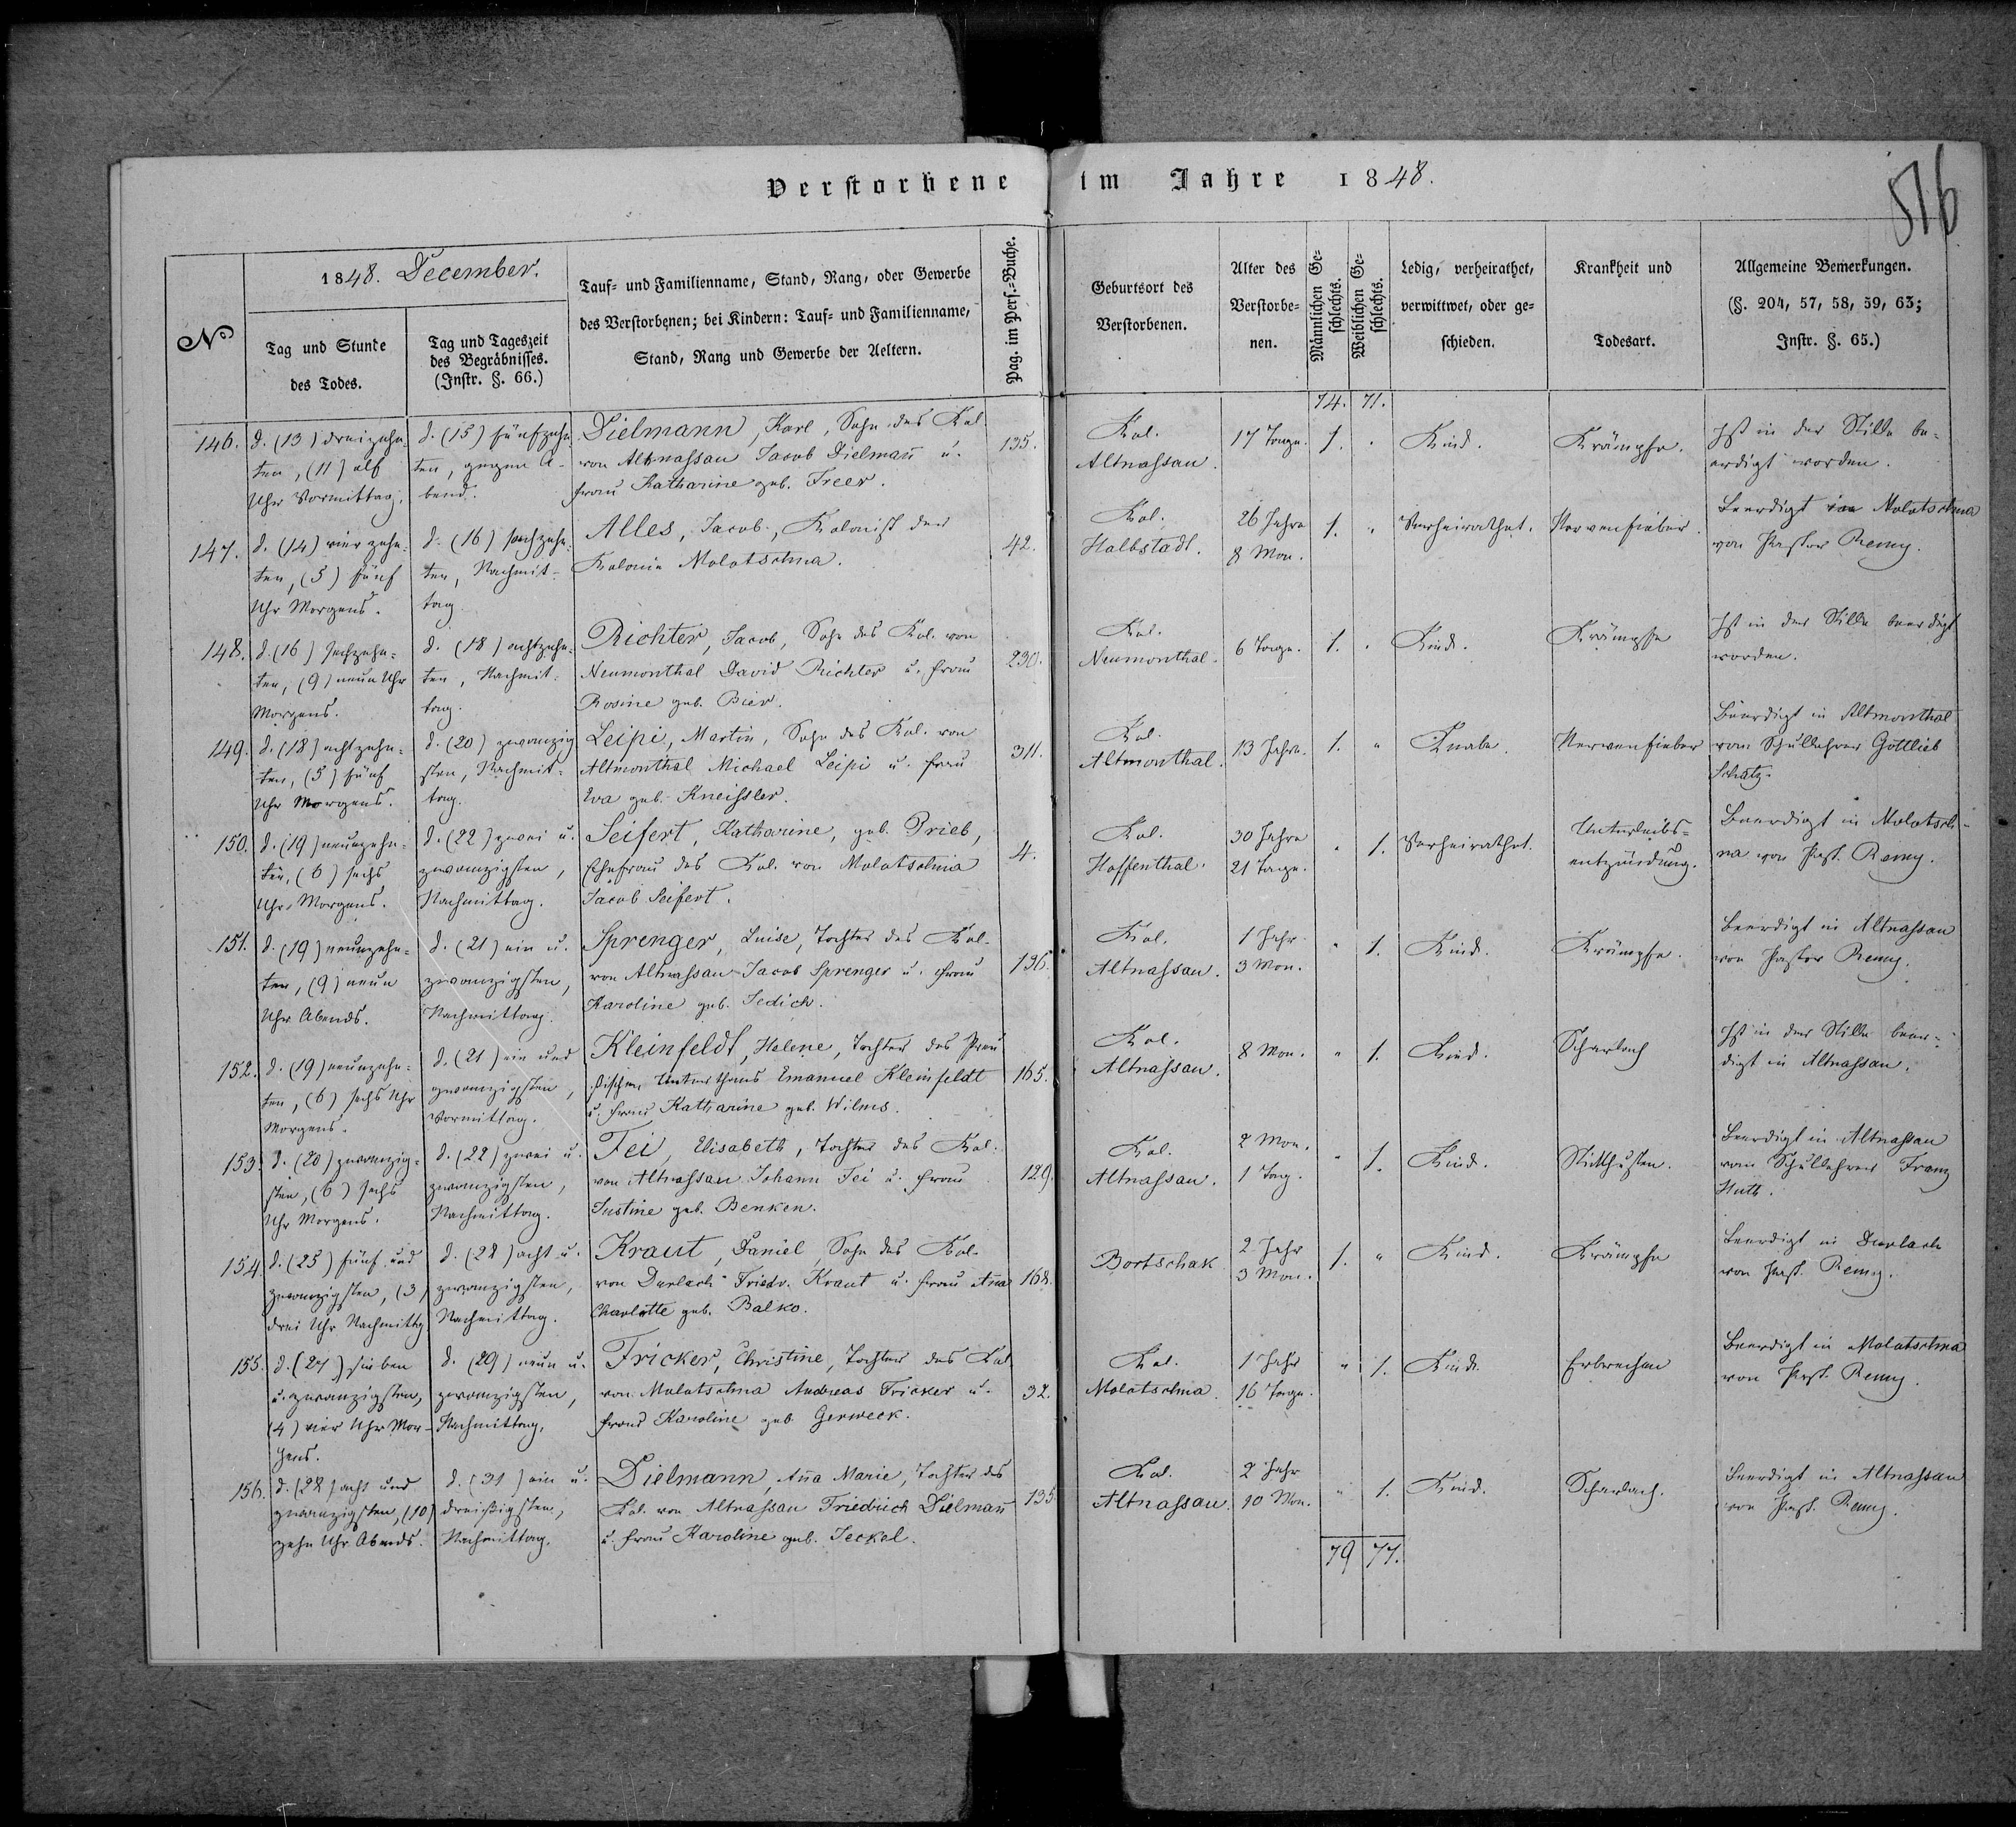 Verstorbene im Jahre 1848.
516
No
1848. December.
Tag und Stunde
des Todes.
Tag und Tageszeit
des Begräbnisses.
(Instr. §. 66.)
Tauf- und Familienname, Stand, Rang, oder Gewerbe
des Verstorbenen; bei Kindern: Tauf- und Familienname,
Stand, Rang und Gewerbe der Aeltern.
Pag. im Pers.-Buche.
Geburtsort des
Verstorbenen.
Alter des
Verstorbe-
nen.
Männlichen Ge-
schlechts.
Weiblichen Ge-
schlechts.
Ledig, verheirathet,
verwittwet, oder ge-
schieden.
Krankheit und
Todesart.
Allgemeine Bemerkungen.
(§. 204, 57, 58, 59, 63;
Instr. §. 65.)
74. 71.
146.
d. (13) dreizehn-
ten, (11) elf
Uhr Vormittag.
d. (15) fünfzehn-
ten, gegen A-
bend.
Dielmann, Karl, Sohn des Kol.
von Altnassau Jacob Dielmañ u.
Frau Katharine geb. Freer.
135.
Kol.
Altnassau.
17 Tage.
1. "
Kind.
Krämpfe.
Ist in der Stille be-
erdigt worden.
147.
d. (14) vierzehn-
ten, (5) fünf
Uhr Morgens.
d. (16) sechzehn-
ten, Nachmit-
tag.
Alles, Jacob, Kolonist der
Kolonie Molotschna.
42.
Kol.
Halbstadt.
26 Jahre
8 Mon.
1. "
Verheirathet.
Nervenfieber.
Beerdigt in Molotschna
von Pastor Remy.
148.
d. (16) sechzehn-
ten, (9) neun Uhr
Morgens.
d. (18) achtzehn-
ten, Nachmit-
tag.
Richter, Jacob, Sohn des Kol. von
Neumonthal David Richter u. Frau
Rosine geb. Bier.
230.
Kol.
Neumonthal.
6 Tage.
1. "
Kind.
Krämpfe
Ist in der Stille beerdigt
worden.
149.
d. (18) achtzehn-
ten, (5) fünf
Uhr Morgens.
d. (20) zwanzig
sten, Nachmit-
tag.
Leipi, Martin, Sohn des Kol. von
Altmonthal Michael Leipi u. Frau
Eva geb. Kneissler.
311.
Kol.
Altmonthal.
13 Jahre.
1. "
Knabe.
Nervenfieber
Beerdigt in Altmonthal
vom Schullehrer Gottlieb
Schatz.
150.
d. (19) neunzehn-
ten, (6) sechs
Uhr Morgens.
d. (22) zwei u.
zwanzigsten,
Nachmittag.
Seifert, Katharine, geb. Prieb,
Ehefrau des Kol. von Molotschna
Jacob Seifert.
4.
Kol.
Hoffenthal.
30 Jahre
21 Tage.
" 1.
Verheirathet.
Unterleibs-
entzündung.
Beerdigt in Molotsch-
na von Past. Remy.
151.
d. (19) neunzehn-
ten, (9) neun
Uhr Abends.
d. (21) ein u.
zwanzigsten,
Nachmittag.
Sprenger, Luise, Tochter des Kol.
von Altnassau Jacob Sprenger u. Frau
Karoline geb. Jedich.
136.
Kol.
Altnassau.
1 Jahr
3 Mon.
" 1.
Kind.
Krämpfe.
Beerdigt in Altnassau
von Pastor Remy.
152.
d. (19) neunzehn-
ten, (6) sechs Uhr
Morgens.
d. (21) ein und
zwanzigsten,
Vormittag.
Kleinfeldt, Helene, Tochter des Preu
ßischen Unterthans Emanuel Kleinfeldt
u. Frau Katharine geb. Wilms.
165.
Kol.
Altnassau.
8 Mon.
" 1.
Kind.
Scharlach
Ist in der Stille beer-
digt in Altnassau.
153.
d. (20) zwanzig-
sten, (6) sechs
Uhr Morgens.
d. (22) zwei u.
zwanzigsten,
Nachmittag.
Fei, Elisabeth, Tochter des Kol.
von Altnassau Johann Fei u. Frau
Justine geb. Benken.
129.
Kol.
Altnassau.
2 Mon.
1 Tag.
" 1.
Kind.
Stickhusten.
Beerdigt in Altnassau
vom Schullehrer Franz
Huth.
154.
d. (25) fünf und
zwanzigsten, (3)
drei Uhr Nachmittg
d. (28) acht u.
zwanzigsten,
Nachmittag.
Kraut, Daniel, Sohn des Kol.
von Durlach Friedr. Kraut u. Frau Aña
Charlotte geb. Balko.
168.
Bortschak
2 Jahr
3 Mon.
1. "
Kind.
Krämpfe
Beerdigt in Durlach
von Past. Remy.
155.
d. (27) sieben
u. zwanzigsten,
(4) vier Uhr Mor-
gens.
d. (29) neun u.
zwanzigsten,
Nachmittag.
Fricker, Christine, Tochter des Kol.
von Molotschna Andreas Fricker u.
Frau Karoline geb. Gerweck.
32.
Kol.
Molotschna.
1 Jahr
16 Tage.
" 1.
Kind.
Erbrechen
Beerdigt in Molotschna
von Past. Remy.
156.
d. (28) acht und
zwanzigsten, (10)
zehn Uhr Abends.
d. (31) ein u.
dreißigsten,
Nachmittag.
Dielmann, Aña Marie, Tochter des
Kol. von Altnassau Friedrich Dielmañ
u. Frau Karoline geb. Jeckel.
135.
Kol.
Altnassau.
2 Jahr
10 Mon.
" 1.
Kind.
Scharlach.
Beerdigt in Altnassau
von Past. Remy.
79 77.